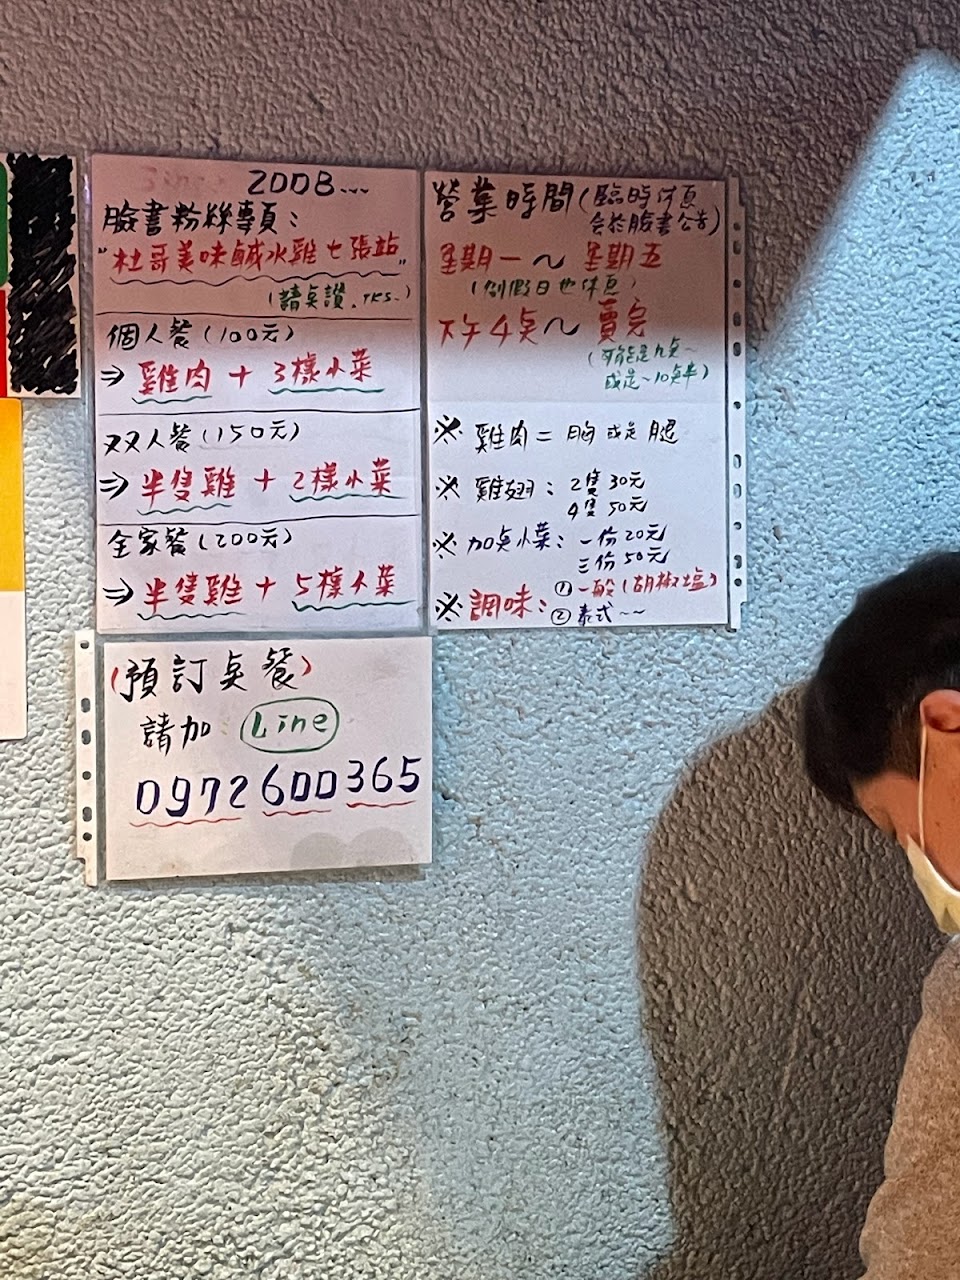 Since 2008...
臉書粉絲專頁：
"杜哥美味鹹水雞七張站"
(請点讚.TKS.)
個人餐(100元)
⇒ 雞肉 + 3樣小菜
双人餐(150元)
⇒ 半隻雞 + 2樣小菜
全家餐(200元)
⇒ 半隻雞 + 5樣小菜
營業時間(臨時休息
會於臉書公告)
星期一～星期五
(例假日也休息)
下午4点～賣完
(可能是九点~
或是~10点半)
※ 雞肉=胸或是腿
※ 雞翅：2隻30元
4隻50元
※ 加点小菜：一份20元
三份50元
※ 調味：①一般(胡椒塩)
②泰式~~
(預訂点餐)
請加 Line
0972600365